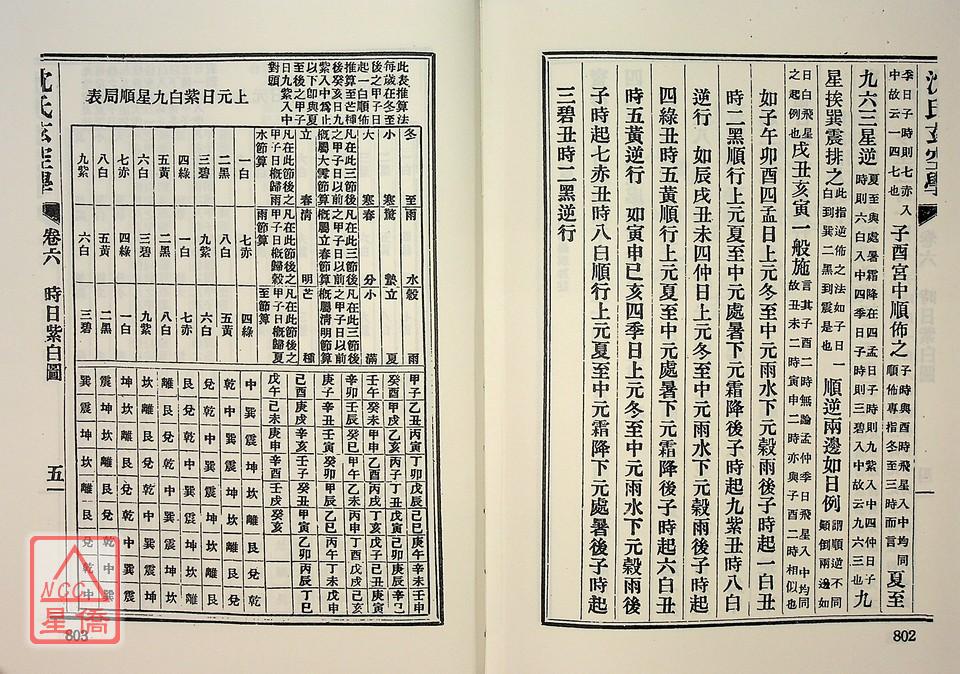 沈氏玄空學
季日子時則七赤入
中故云一四七也
子酉宮中順佈之
子時與酉時飛星入中均同
順佈專指冬至三時而言
夏至
九六三星逆
夏至與處暑霜降在四孟日子時則九紫入中四仲日子
時則六白入中四季日子時則三碧入中故云九六三也
九
星挨巽震排之
此指逆佈之法如子日一
白到巽二黑到震是也
順逆兩邊如日例
謂順逆不同
顛倒兩邊如
日白飛星
之起例也
戌丑亥寅一般施
言其子酉二時無論孟仲季日飛星入中均同
故丑未二時寅申二時亦與子酉二時相似也
如子午卯酉四孟日上元冬至中元雨水下元穀雨後子時起一白丑
時二黑順行上元夏至中元處暑下元霜降後子時起九紫丑時八白
逆行 如辰戌丑未四仲日上元冬至中元雨水下元穀雨後子時起
四綠丑時五黃順行上元夏至中元處暑下元霜降後子時起六白丑
時五黃逆行 如寅申巳亥四季日上元冬至中元雨水下元穀雨後
子時起七赤丑時八白順行上元夏至中元霜降下元處暑後子時起
三碧丑時二黑逆行
802
此表推算法
每歲在冬至
後之甲子日
起一白順佈
推算至芒種
後癸亥日九
紫入中為止
以下卽與夏
至後之甲子
日九紫入中
對頭
上元日紫白九星順局表
冬 至 雨 水 穀 雨
小 寒 驚 蟄 立 夏
大 寒 春 分 小 滿
立 春 清 明 芒 種
凡在此三節後
之甲子日以前
概屬大雪節算
凡在此節後之
甲子日概歸雨
水節算
凡在此三節後
之甲子日以前
概屬立春節算
凡在此節後之
甲子日概歸穀
雨節算
凡在此三節後
之甲子日以前
概屬清明節算
凡在此節後之
甲子日概歸夏
至節算
一白 七赤 四綠
二黑 八白 五黃
三碧 九紫 六白
四綠 一白 七赤
五黃 二黑 八白
六白 三碧 九紫
七赤 四綠 一白
八白 五黃 二黑
九紫 六白 三碧
甲子 乙丑 丙寅 丁卯 戊辰 己巳 庚午 辛未 壬申
癸酉 甲戌 乙亥 丙子 丁丑 戊寅 己卯 庚辰 辛巳
壬午 癸未 甲申 乙酉 丙戌 丁亥 戊子 己丑 庚寅
辛卯 壬辰 癸巳 甲午 乙未 丙申 丁酉 戊戌 己亥
庚子 辛丑 壬寅 癸卯 甲辰 乙巳 丙午 丁未 戊申
己酉 庚戌 辛亥 壬子 癸丑 甲寅 乙卯 丙辰 丁巳
戊午 己未 庚申 辛酉 壬戌 癸亥
中 巽 震 坤 坎 離 艮 兌 乾
乾 中 巽 震 坤 坎 離 艮 兌
兌 乾 中 巽 震 坤 坎 離 艮
艮 兌 乾 中 巽 震 坤 坎 離
離 艮 兌 乾 中 巽 震 坤 坎
坎 離 艮 兌 乾 中 巽 震 坤
坤 坎 離 艮 兌 乾 中 巽 震
震 坤 坎 離 艮 兌 乾 中 巽
巽 震 坤 坎 離 艮 兌 乾 中
沈氏玄空學 卷六 時日紫白圖 五一
803
NCC
星僑